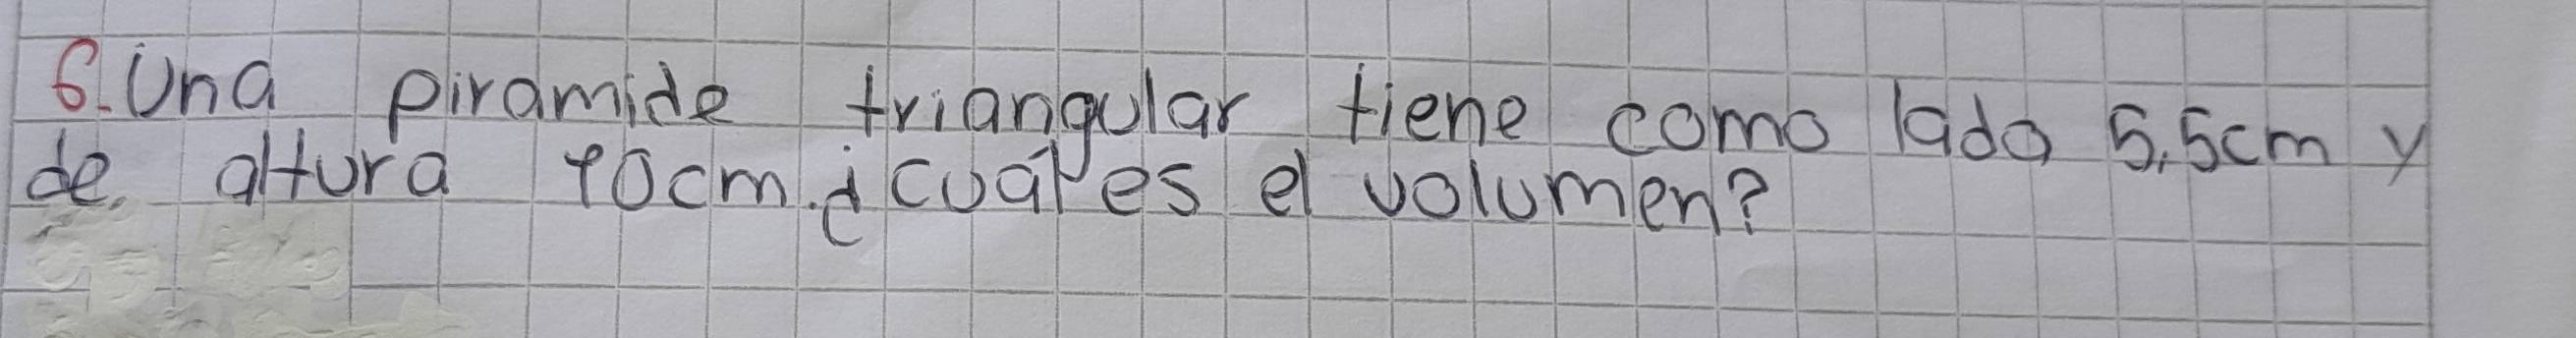 6. Una piramide triangular tiene como lado 5,5cm y
de altura 10cm. ¿cuál es el volumen?